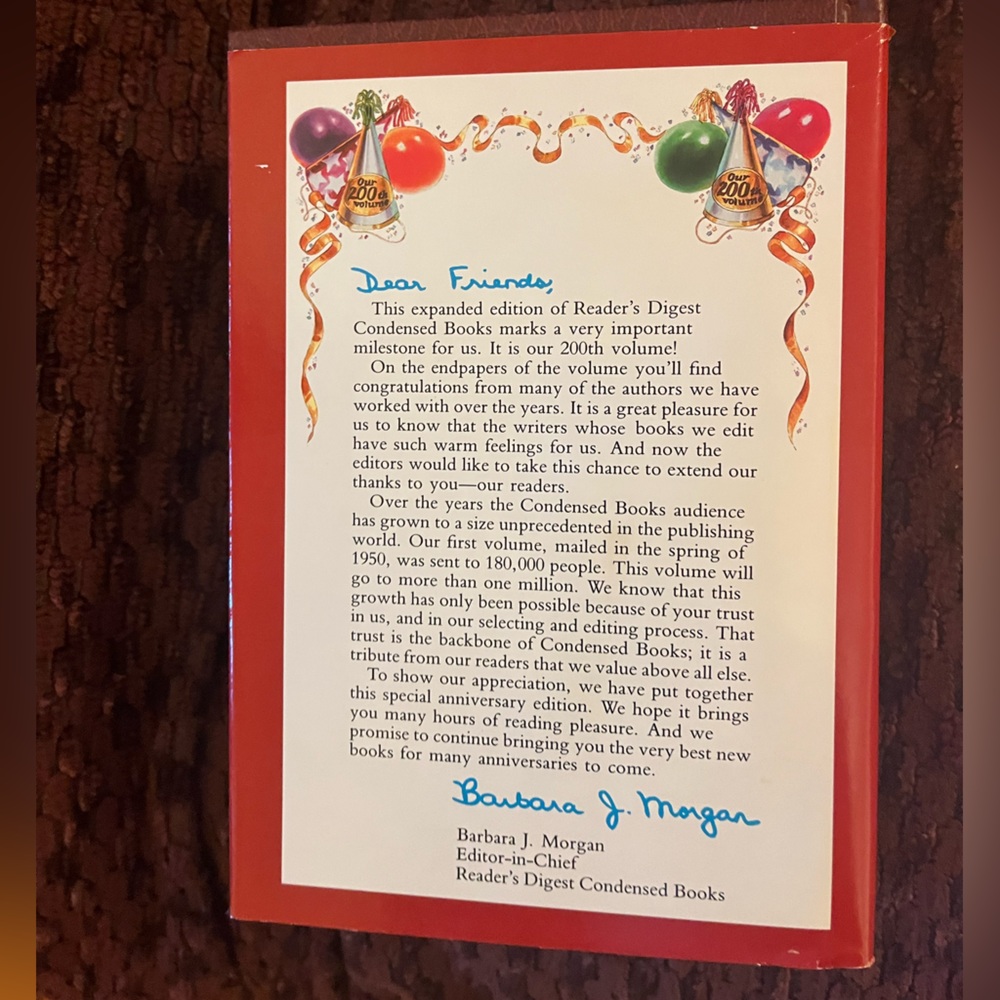 Our
200th
volume
Our
200th
volume
Dear Friends,
This expanded edition of Reader's Digest
Condensed Books marks a very important
milestone for us. It is our 200th volume!
On the endpapers of the volume you'll find
congratulations from many of the authors we have
worked with over the years. It is a great pleasure for
us to know that the writers whose books we edit
have such warm feelings for us. And now the
editors would like to take this chance to extend our
thanks to you—our readers.
Over the years the Condensed Books audience
has grown to a size unprecedented in the publishing
world. Our first volume, mailed in the spring of
1950, was sent to 180,000 people. This volume will
go to more than one million. We know that this
growth has only been possible because of your trust
in us, and in our selecting and editing process. That
trust is the backbone of Condensed Books; it is a
tribute from our readers that we value above all else.
To show our appreciation, we have put together
this special anniversary edition. We hope it brings
you many hours of reading pleasure. And we
promise to continue bringing you the very best new
books for many anniversaries to come.
Barbara J. Morgan
Barbara J. Morgan
Editor-in-Chief
Reader's Digest Condensed Books